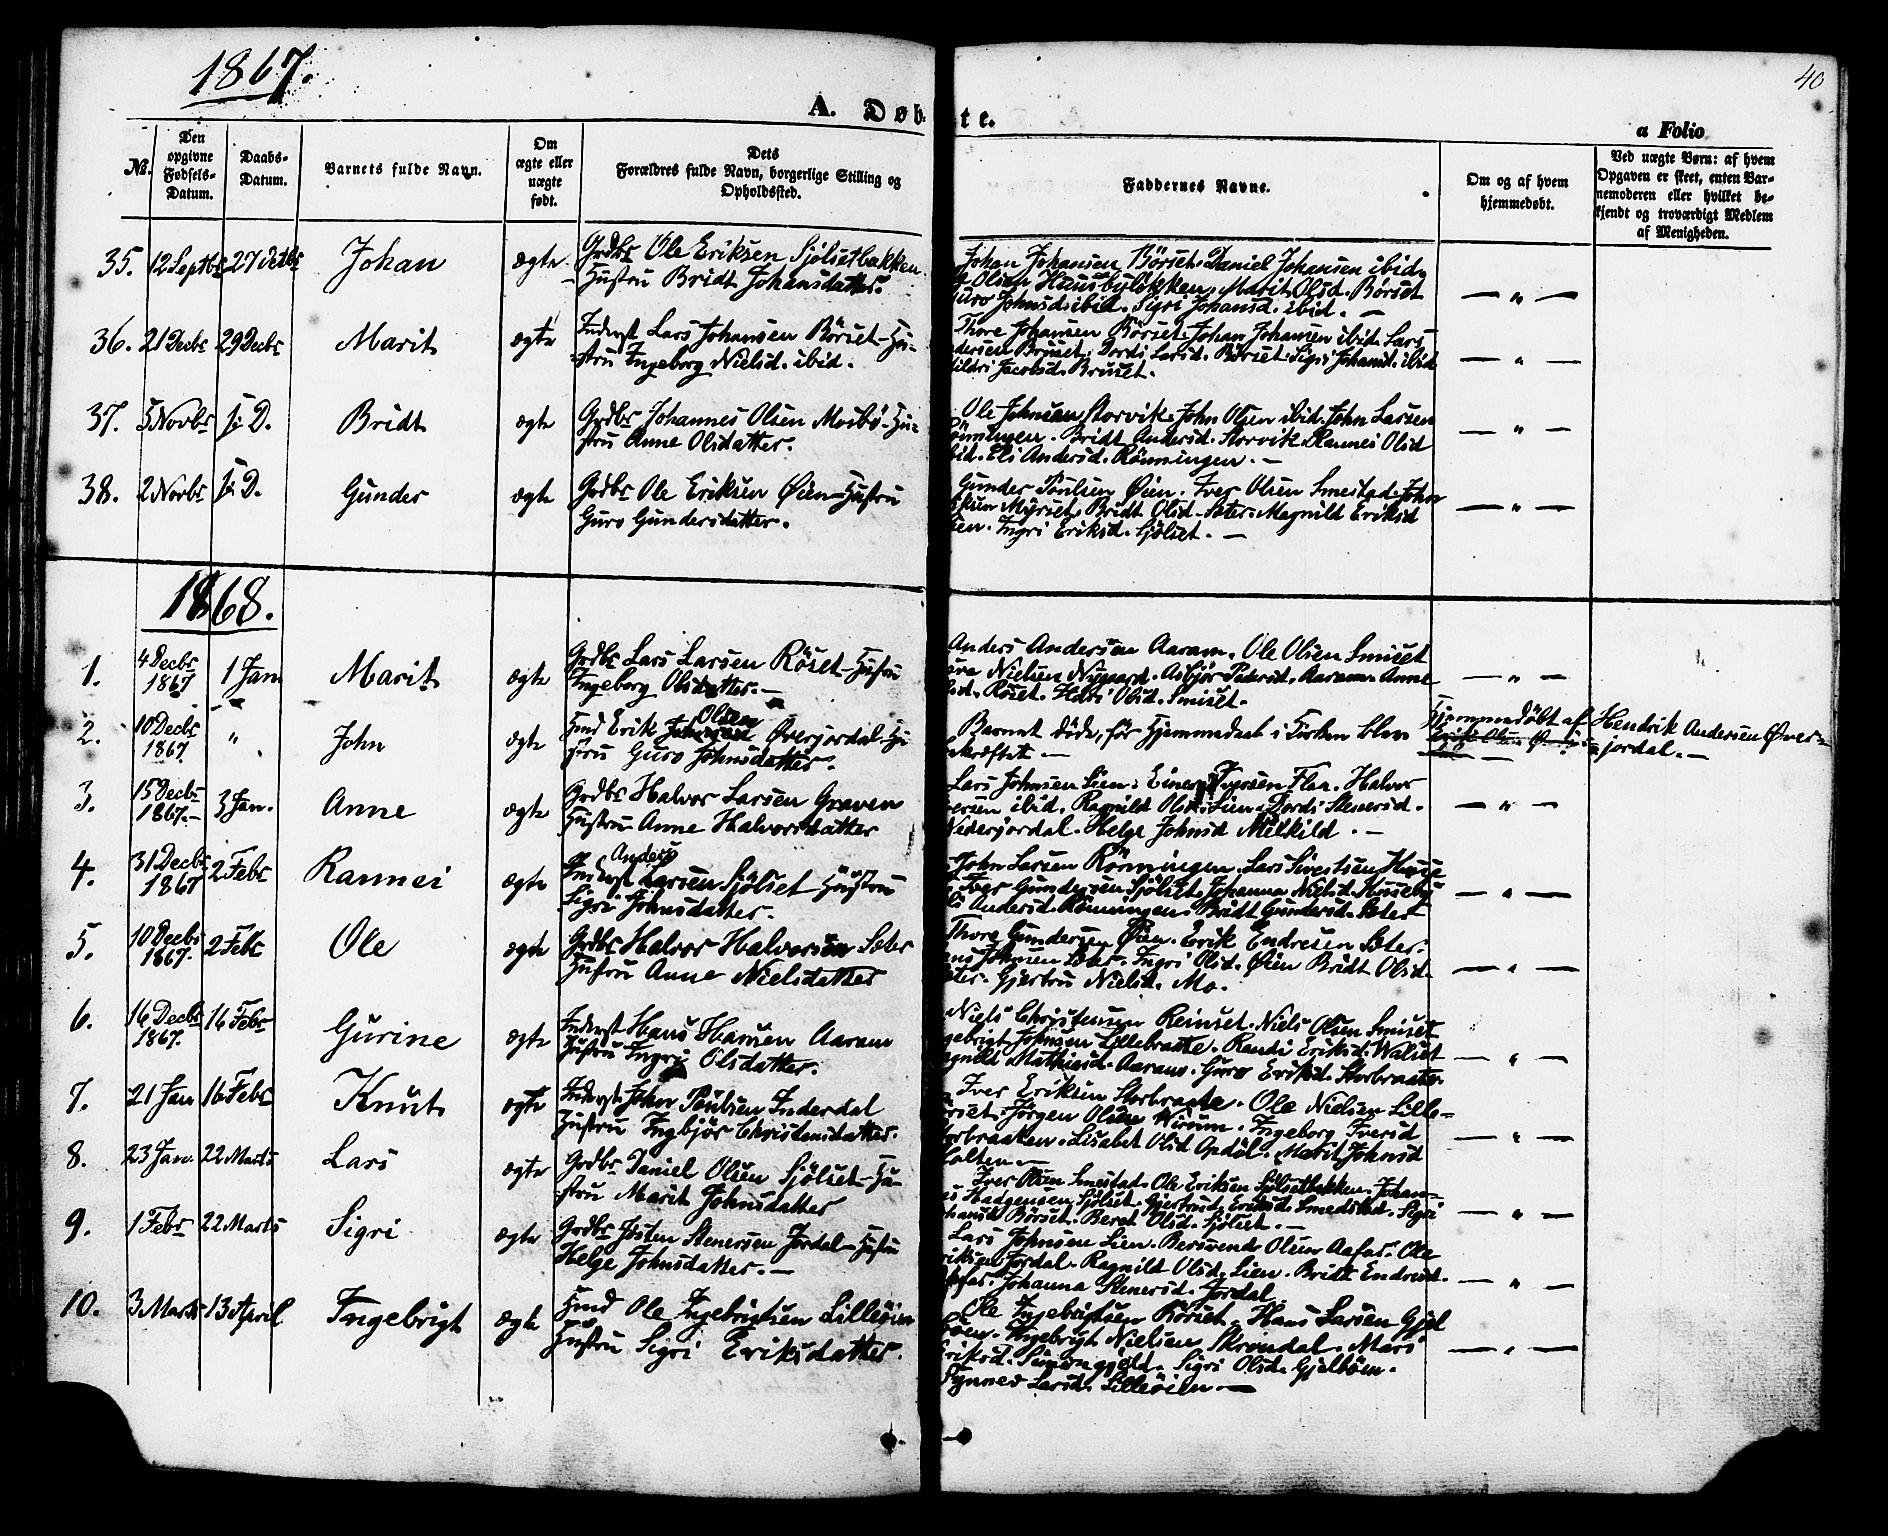 1867.
40
A. Døbte.
a Folio
No.
Den opgivne Fødsels-Datum.
Daabs-Datum.
Barnets fulde Navn.
Om ægte eller uægte født.
Dets Forældres fulde Navn, borgerlige Stilling og Opholdssted.
Faddernes Navne.
Om og af hvem hjemmedøbt.
Ved uægte Børn: af hvem Opgaven er skeet, enten Barnemoderen eller hvilket bekjendt og troværdigt Medlem af Menigheden.
35. 12 Septbr 27 Octbr Johan ægte Grdbr Ole Eriksen Sjölsetbakken
Hustru Bridt Johansdatter.
Johan Johansen Börset. Daniel Johansen ibid.
Olsen Huusbylökken. Marit Olsd. Börset
Guro Johnsd. ibid. Sigri Johansd. ibid. —
36. 21 Decbr 29 Decbr Marit ægte Inderst Lars Johansen Börset-Hu-
stru Ingeborg Nielsd. ibid.
Thore Johansen Börset. Johan Johansen ibid. Lars
Andersen Bruset. Dordi Larsd. Börset. Sigri Johansd. ibid
Sildri Jacobsd. Bruset.
37. 5 Novbr s: D. Bridt ægte Grdbr Johannes Olsen Mosbö-Hu-
stru Anne Olsdatter.
Ole Johnsen Storvik. John Olsen ibid. John Larsen
Rönningen. Bridt Andersd. Storvik. Rannei Olsd
ibid. Eli Andersd. Rönningen. —
38. 2 Novbr s: D. Gunder ægte Grdbr Ole Eriksen Øien-Hustru
Guro Gundersdatter.
Gunder Poulsen Øien. Iver Olsen Smestad. John
Myrset. Bridt Olsd. Sæter. Magnild Eriksd
Øien. Ingri Eriksd. Sjölset. —
1868.
1. 4 Decbr 1867 1 Jan Marit ægte Grdbr Lars Larsen Röset-Hustru
Ingeborg Olsdatter. —
Anders Andersen Aaram. Ole Olsen Smiset
Nielsen Nygaard. Asbjör Pedersd. Aaram. Anne
Olsd. Röset. Olsd. Smiset.
2. 10 Decbr 1867 " John ægte Hmd Erik Olsen Øverjordal-Hu-
stru Guro Johnsdatter.
Barnet döde, för Hjemmedaab i Kirken blev
bekræftet —
Hjemmedöbt af Hendrik Andersen Øver-
jordal. —
3. 15 Decbr 1867. 3 Jan. Anne ægte Grdbr Halvor Larsen Graven
Hustru Anne Halvorsdatter
Lars Johnsen Lien. Einer Iversen Flaa. Halvor
Iversen ibid. Ragnild Olsd. Lien. Dordi Stenersd.
Nederjordal. Helge Johnsd Melkild. —
4. 31 Decbr 1867 2 Febr Rannei ægte Inderst Anders Larsen Sjölset Hustru
Sigri Johnsdatter.
John Larsen Rönningen. Lars Sivertsen Huse
Iver Gundersen Sjölset. Johanna Nielsd. Husseby
Eli Andersd. Rönningen. Bridt Gundersd. Sæter
5. 10 Decbr 1867. 2 Febr Ole ægte Grdbr Halvor Halvorsen Sæter
Hustru Anne Nielsdatter
Thore Gundersen Øien. Erik Endresen Sæter.
Johnsen Sæter. Ingri Olsd. Øien Bridt Olsd.
Sæter. Gjertru Nielsd. Mo.
6. 16 Decbr 1867. 16 Febr Gurine ægte Inderst Hans Hansen Aaram
Hustru Ingri Olsdatter.
Niels Christensen Reinset. Niels Olsen Smiset
Ingebrigt Johnsen Lillebraate. Randi Eriksd. Walset
Magnild Mathiasd. Aaram. Guro Eriksd. Storbraaten
7. 21 Jan 16 Febr Knut ægte Inderst John Poulsen Inderdal
Hustru Ingbjör Christensdatter.
Iver Eriksen Storbraate. Ole Nielsen Lille-
Jörgen Olsen Wirum. Ingeborg Iversd
Storbraaten. Lisabet Olsd Opdöl. Marit Johnsd
Holten —
8. 23 Jan. 22 Marts Lars ægte Grdbr Daniel Olsen Sjölset-Hu-
stru Marit Johnsdatter
Iver Olsen Smestad. Ole Eriksen Sjölsetbakken. Johan-
Sjölset. Gjertrud Eriksd. Smedstad. Sigri
Johansd Börset. Beret Olsd. Sjölset. —
9. 1 Febr 22 Marts Sigri ægte Grdbr Josten Stenersen Jordal-Hustru
Helge Johnsdatter. —
Lars Johnsen Lien. Bersvend Olsen Aafar. Ole
Eriksen Jordal. Ragnild Olsd. Lien. Bridt Endresd.
Aafar. Johanna Stenersd. Jordal
10. 3 Marts 13 April Ingebrigt ægte Hmd Ole Ingebrigtsen Lilleöien
Hustru Sigri Eriksdatter.
Ole Ingebrigtsen Börset. Hans Larsen Gjel-
böen. Ingebrigt Nielsen Skrondal. Mari
Eriksd. Simongjeld. Sigri Olsd. Gjelböen.
Synnev Larsd. Lilleöien —